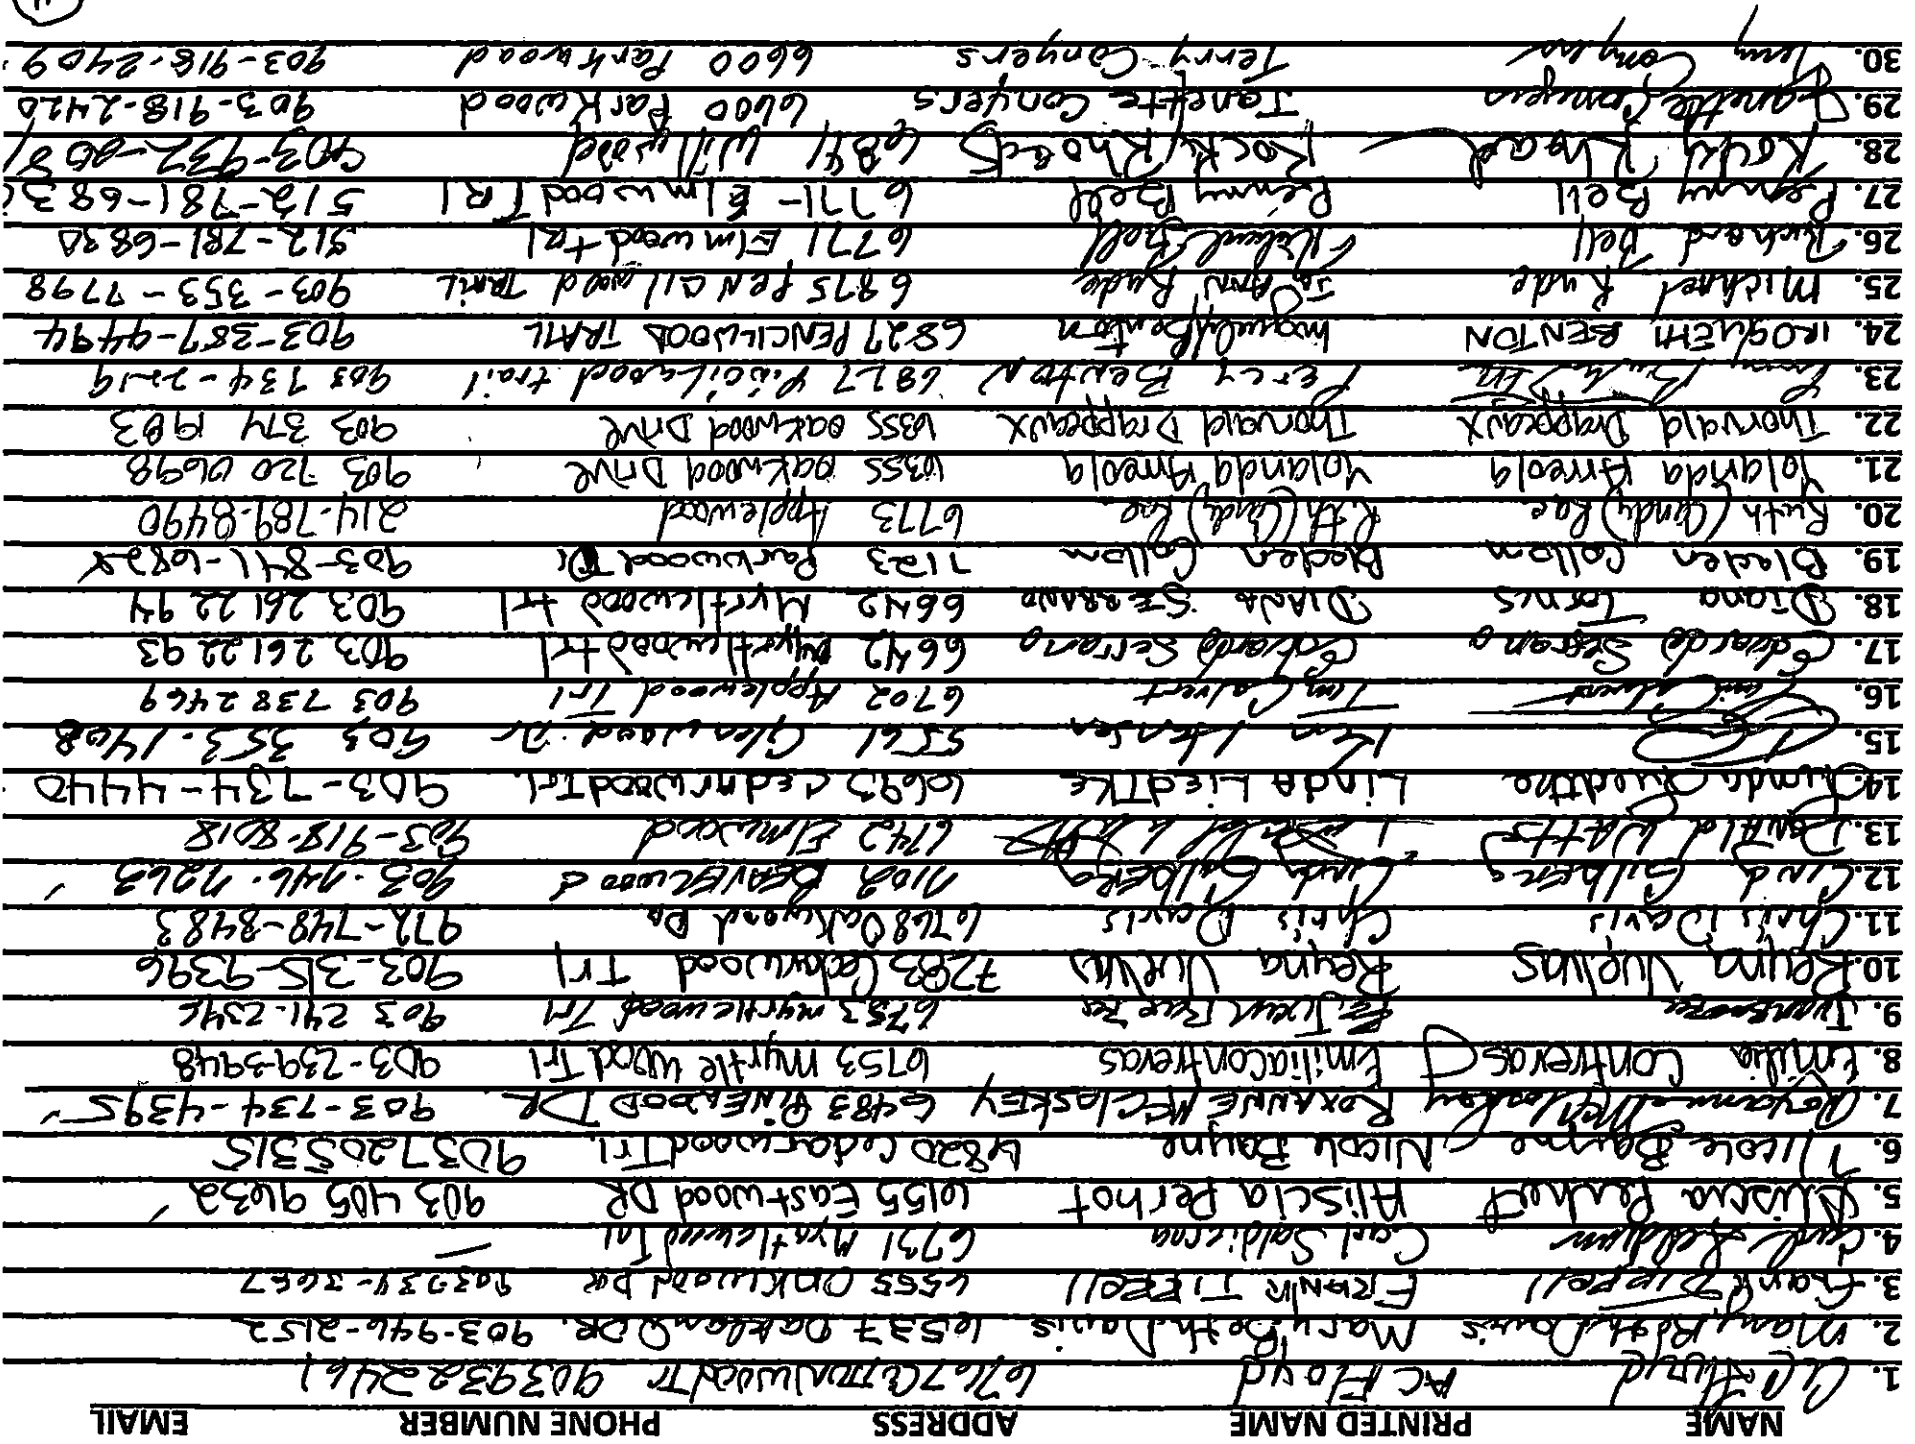 NAME PRINTED NAME ADDRESS PHONE NUMBER EMAIL
1. AC Floyd AC Floyd 6767 Cottonwood Tr 9039322461
2. Mary Beth Davis Mary Beth Davis 6537 Oakland DR. 903-946-2152
3. Frank Tippell FRANK TIPPEll 6565 OAKwood DR
4. Carl Saldierna 6731 Myrtlewood Trl
5. Aliscia Perhot Aliscia Perhot 6155 Eastwood DR 903 405 9632
6. Nicole Bayne Nicole Bayne 6820 Cedarwood Trl. 9037205315
7. Roxanne McCloskey ROXANNE McCLOSKEY 6483 PINEWOOD DR 903-734-4395
8. Emilia Contreras Emilia Contreras 6753 Myrtle Wood Trl 903-239-3948
9. 6753 myrtlewood Trl 903 241-2346
10. Reyna Reyna 7283 Trl 903-315-9396
11. Chris Davis Chris Davis 6768 Oakwood Dr 972-748-8483
12. Cindy Gilberg Cindy GilBERG 7102 BEAVERwood 903-746-7263
13. DONALD WATTS 6742 Elmwood 903-918-8018
14. Linda Liedtke Linda LiedTKE 6693 cedarwood Trl. 903-734-4440
15. Ken Hansen 5561 Glenwood Dr 903 353.1408
16. Tim Calvert Tim Calvert 6702 Applewood Trl 903 738 2469
17. Eduardo Serrano Eduardo Serrano 6642 Myrtlewood trl 903 261 22 93
18. Diana Torres DIANA SERRANO 6642 Myrtlewood trl 903 261 22 94
19. Bladen Collom Bladen Collom 7123 Parkwood Dr 903-841-6824
20. Ruth (Candy) Rae Ruth (Candy) Rae 6773 Applewood 214-789-8490
21. Yolanda Arreola Yolanda Arreola 6355 Oakwood Drive 903 720 0698
22. Thorvald Drappeaux Thorvald Drappeaux 6355 Oakwood Drive 903 374 1983
23. Percy BENTON 6827 trail 903 734-2219
24. BENTON Benton 6827 PENCILWOOD TRAIL 903-387-9494
25. Michael Rude Jo ANN Rude 6875 PENCILWOOD TRAIL 903-353-7798
26. Richard Bell Richard Bell 6771 Elmwood trl 512-781-6830
27. Penny Bell Penny Bell 6771- Elmwood TRl 512-781-683
28. Rocky Rhoads Rocky Rhoads 6841 Willwood
29. Janette Conyers Janette Conyers 6600 Parkwood 903-918-2420
30. Terry Conyers Terry Conyers 6600 Parkwood 903-918-2409